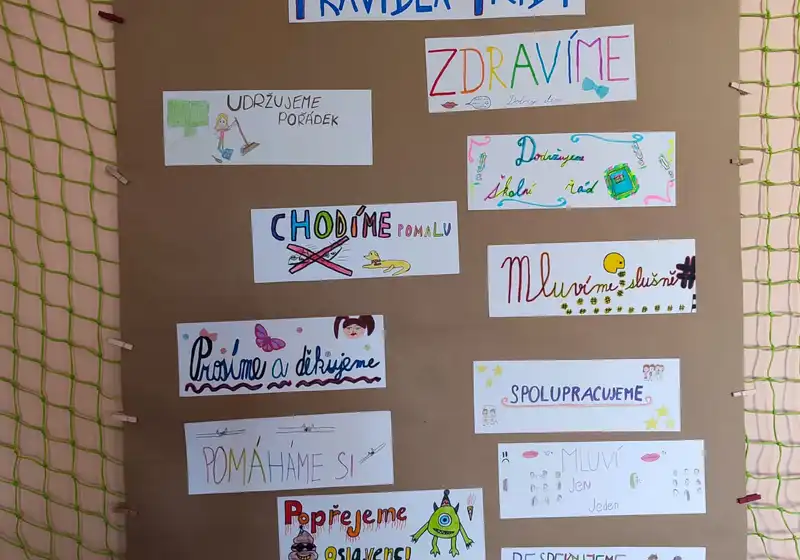 PRAVIDLA TŘÍDY
ZDRAVÍME
UDRŽUJEME
POŘÁDEK
Dodržujeme
školní řád
CHODÍME POMALU
Mluvíme slušně
Prosíme a děkujeme
SPOLUPRACUJEME
POMÁHÁME SI
MLUVÍ
Jen
Jeden
Popřejeme
oslavenci
RESPEKTUJEME